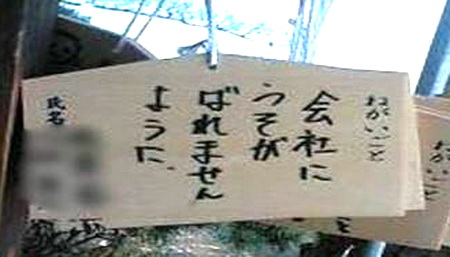 おねがいごと
会社に
うそが
ばれません
ように
氏名